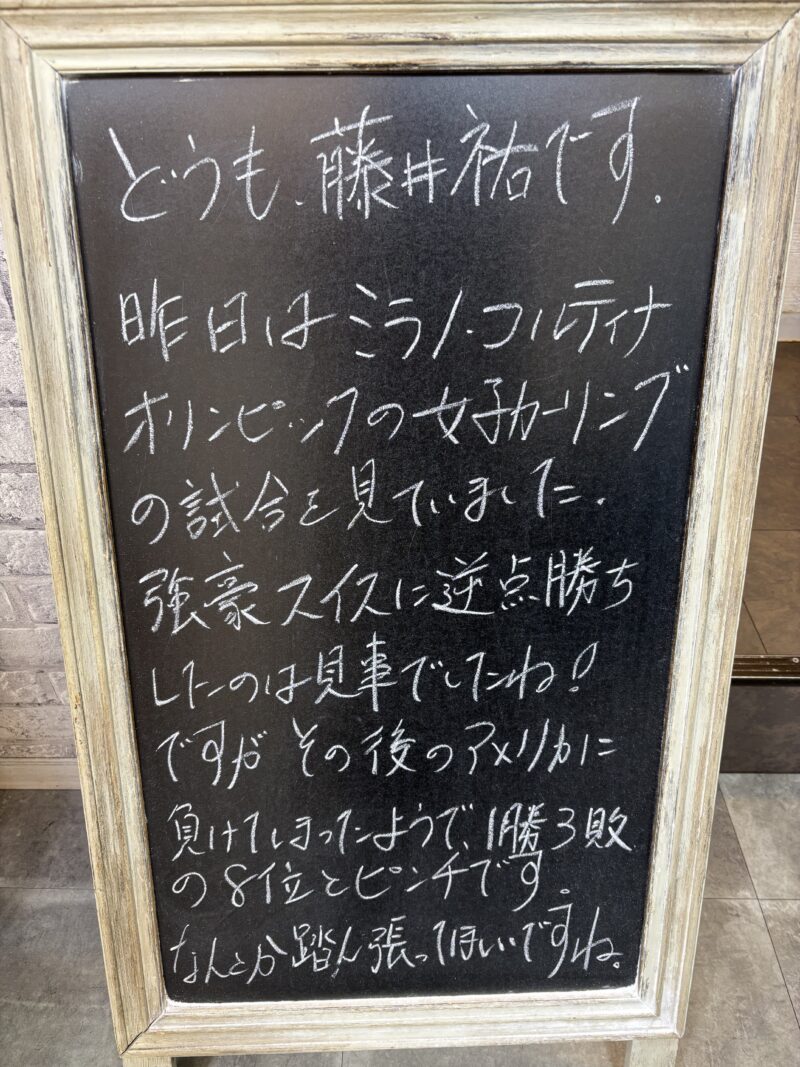 どうも、藤井祐です.
昨日はミラノ・コルティナ
オリンピックの女子カーリング
の試合を見ていました.
強豪スイスに逆点勝ち
したのは見事でしたね!
ですが その後のアメリカに
負けてしまったようで、1勝3敗
の8位とピンチです。
なんとか踏ん張ってほしいですね。